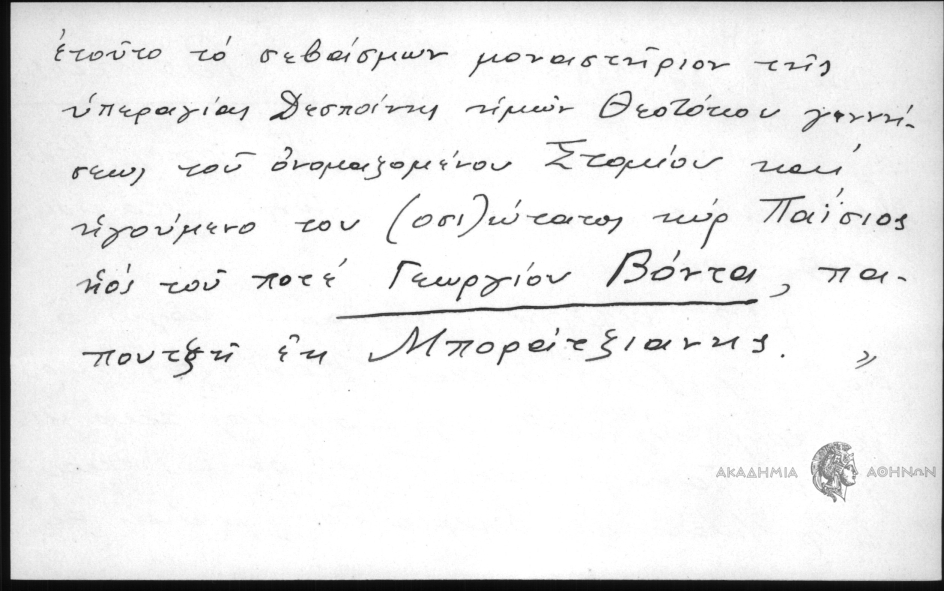 ἐτοῦτο τό σεβάσμων μοναστῆριον τῆς
ὑπεραγίας Δεσποίνης ἡμῶν Θεοτόκου γεννή-
σεως τοῦ ὀνομαζομένου Στομίου καί
ἡγούμενο του (οσι)ώτατος κύρ Παΐσιος
ἡός τοῦ ποτέ Γεωργίου Βόντα, πα-
πουτζῆ ἐκ Μποράτζιανης. "
ΑΚΑΔΗΜΙΑ ΑΘΗΝΩΝ